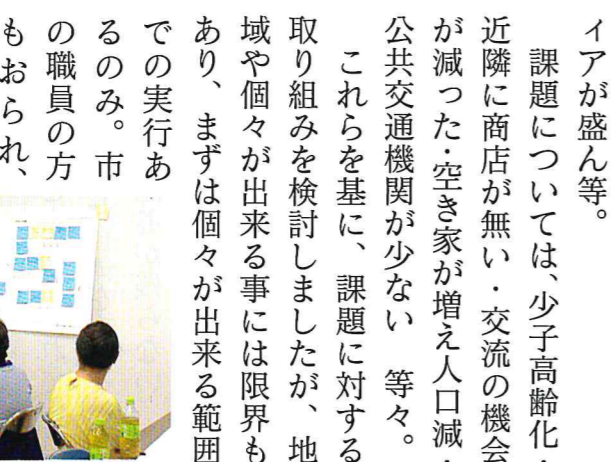 ィアが盛ん等。
課題については、少子高齢化・
近隣に商店が無い・交流の機会
が減った・空き家が増え人口減・
公共交通機関が少ない　等々。
これらを基に、課題に対する
取り組みを検討しましたが、地
域や個々が出来る事には限界も
あり、まずは個々が出来る範囲
での実行あ
るのみ。市
の職員の方
もおられ、